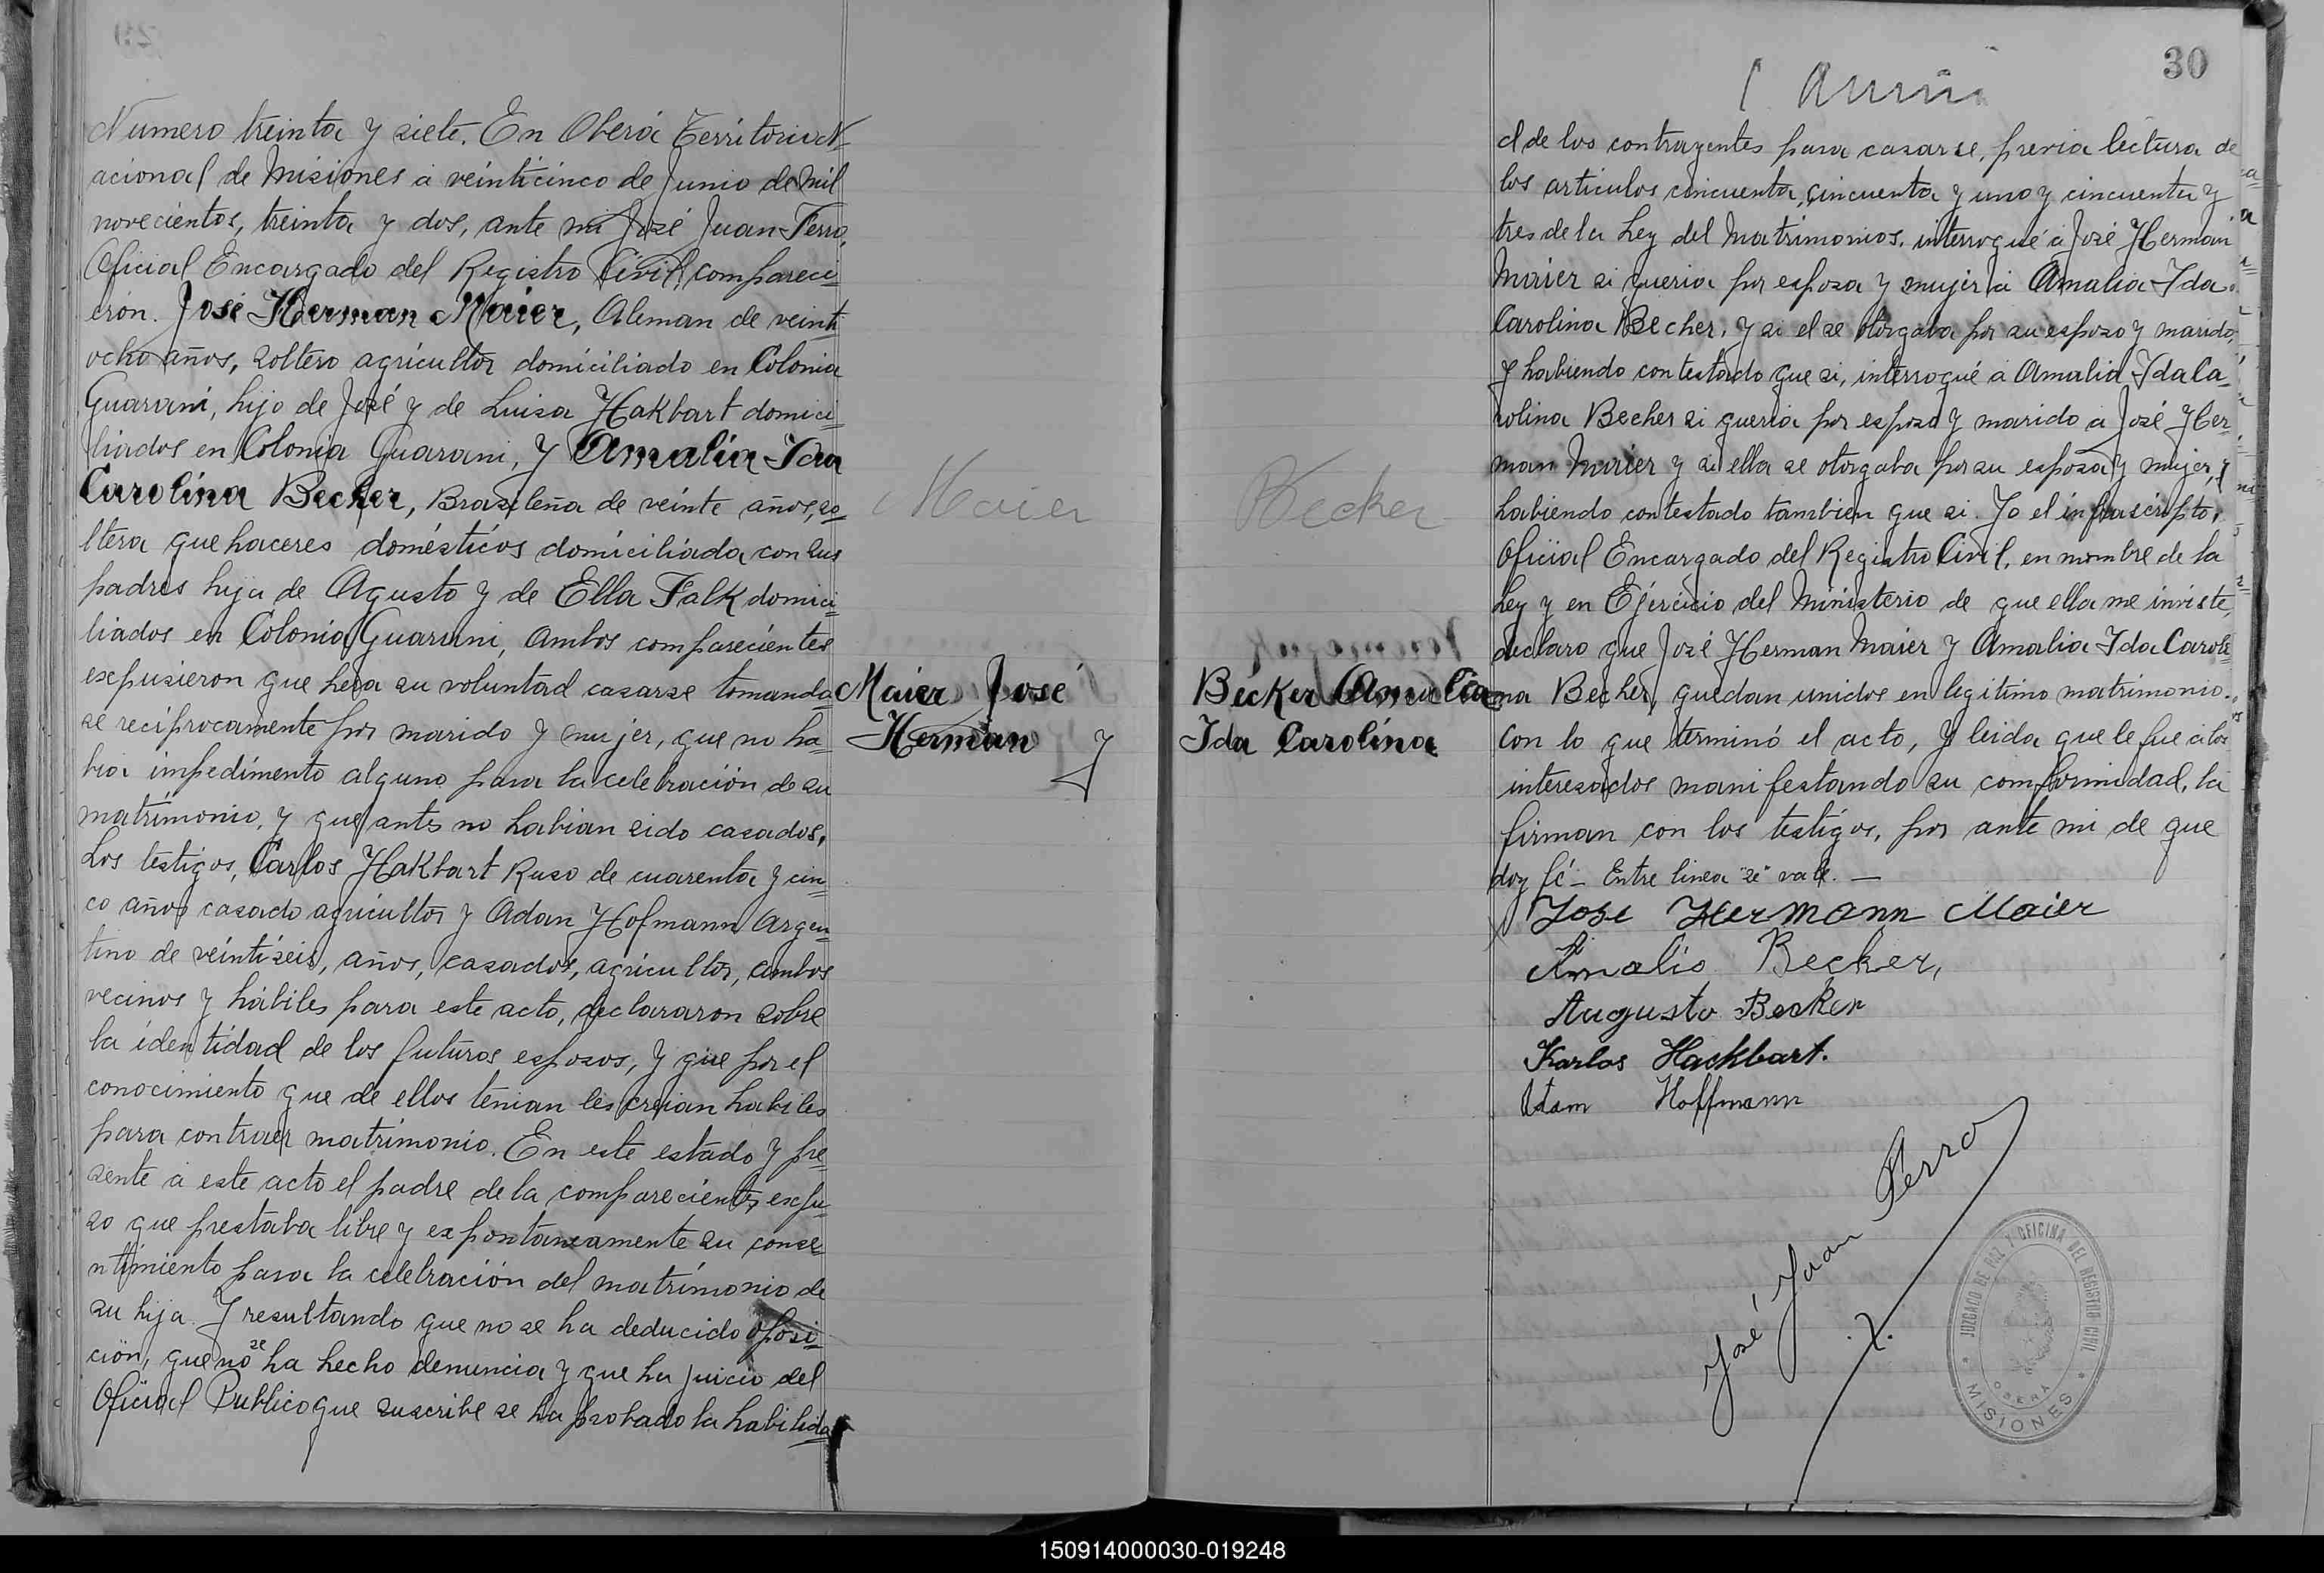 Numero treinta y siete. En Oberá Territorio N-
acional de Misiones a veinticinco de Junio de mil
novecientos, treinta y dos, ante mi José Juan Ferro,
Oficial Encargado del Registro Civil, compareci=
erón. José Herman Maier, Aleman de veinti
ocho años, soltero agricultor domiciliado en Colonia
Guarani, hijo de José y de Luisa Hakbart domici=
liados en Colonia Guarani, y Amalia Ida
Carolina Becker, Brasileña de veinte años, so=
ltera que haceres domésticos domiciliada con sus
padres hija de Agusto y de Ella Falk domici=
liados en Colonia Guarani, Ambos comparecientes
expusieron que hera su voluntad casarse tomando
se reciprocamente por marido y mujer, que no ha=
bia impedimento alguno para la celebración de su
matrimonio, y que antes no habian sido casados.
Los testigos, Carlos Hakbart Ruso de cuarenta y cin=
co años casado agricultor y Adan Hofmann Argen=
tino de veintiseis, años, casados, agricultor, ambos
vecinos y hábiles para este acto, declararon sobre
la identidad de los futuros esposos, y que por el
conocimiento que de ellos tenian les creian habiles
para contraer matrimonio. En este estado y pre=
sente a este acto el padre de la compareciente, expu=
so que prestaba libre y expontaneamente su conse=
ntimiento para la celebración del matrimonio de
su hija. Y resultando que no se ha deducido oposi=
ción, que no se ha hecho denuncia y que ha juicio del
Oficial Publico que suscribe se ha probado la habilida=
Maier
Maier José
Herman y
Becker
Becker Amalia
Ida Carolina
30
d de los contrayentes para casarse, previa lectura de
los articulos cincuenta, cincuenta y uno y cincuenta y
tres de la Ley del Matrimonios, interrogué a José Herman
Maier si queria por esposa y mujer a Amalia Ida
Carolina Becher, y si el se otorgaba por su esposo y marido,
y habiendo contestado que si, interrogué a Amalia Ida Ca-
rolina Becher si queria por esposo y marido a José Her-
man Maier y si ella se otorgaba por su esposa y mujer, y
habiendo contestado tambien que si. Yo el infrascripto,
Oficial Encargado del Registro Civil, en nombre de la
Ley y en Ejercicio del Ministerio de que ella me inviste,
declaro que José Herman Maier y Amalia Ida Caroli=
na Becher, quedan unidos en legitimo matrimonio.
Con lo que terminó el acto, y leida que le fue a los
interesados manifestando su comformidad, la
firman con los testigos, por ante mi de que
doy fé - Entre linea "se" vale. —
Jose Hermann Maier
Amalia Becker,
Augusto Becker
Karlos Hackbart.
Adam Hoffmann
José Juan Ferro
JUZGADO DE PAZ Y OFICINA DEL REGISTRO CIVIL
OBERA
MISIONES
150914000030-019248